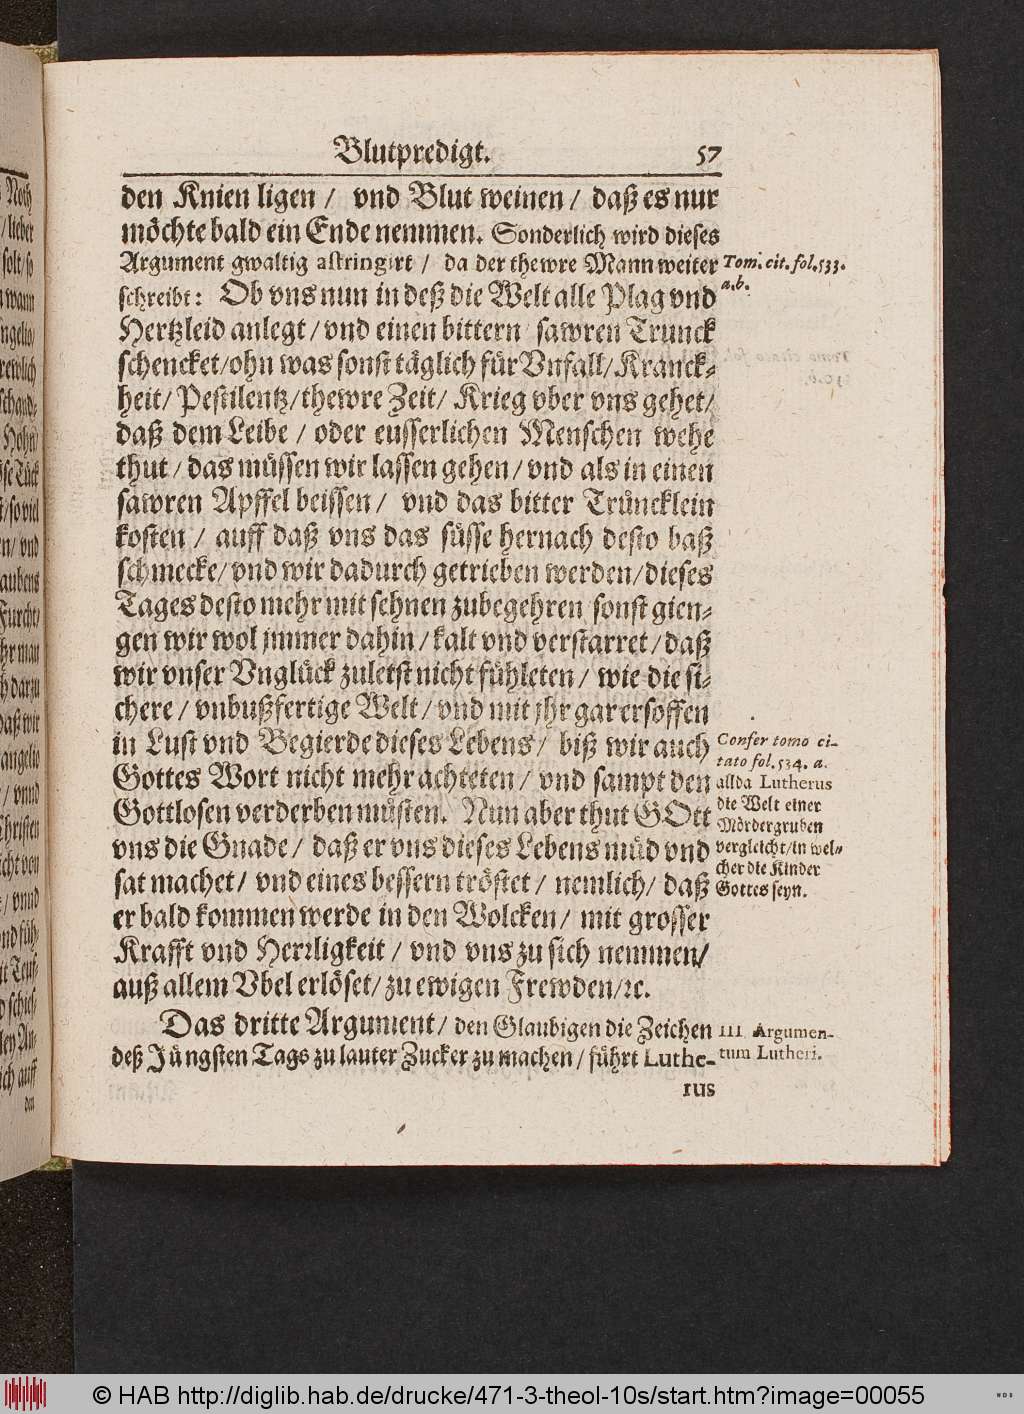 Blutpredigt. 57
den Knien ligen / vnd Blut weinen / daß es nur
möchte bald ein Ende nemmen. Sonderlich wird dieses
Argument gwaltig astringirt / da der thewre Mann weiter
schreibt: Ob vns nun in deß die Welt alle Plag vnd
Hertzleid anlegt / vnd einen bittern sawren Trunck
schencket / ohn was sonst täglich für Vnfall / Kranck-
heit / Pestilentz / thewre Zeit / Krieg vber vns gehet /
daß dem Leibe / oder eusserlichen Menschen wehe
thut / das müssen wir lassen gehen / vnd als in einen
sawren Apffel beissen / vnd das bitter Trüncklein
kosten / auff daß vns das süsse hernach desto baß
schmecke / vnd wir dadurch getrieben werden / dieses
Tages desto mehr mit sehnen zubegehren sonst gien-
gen wir wol jmmer dahin / kalt vnd verstarret / daß
wir vnser Vnglück zuletst nicht fühleten / wie die si-
chere / vnbußfertige Welt / vnd mit jhr gar ersoffen
in Lust vnd Begierde dieses Lebens / biß wir auch
Gottes Wort nicht mehr achteten / vnd sampt den
Gottlosen verderben müsten. Nun aber thut GOtt
vns die Gnade / daß er vns dieses Lebens müd vnd
sat machet / vnd eines bessern tröstet / nemlich / daß
er bald kommen werde in den Wolcken / mit grosser
Krafft vnd Herrligkeit / vnd vns zu sich nemmen /
auß allem Vbel erlöset / zu ewigen Frewden / ꝛc.
Das dritte Argument / den Glaubigen die Zeichen
deß Jüngsten Tags zu lauter Zucker zu machen / führt Luthe-
rus
Tom. cit. fol. 533.
a. b.
Confer tomo ci-
tato fol. 534. a.
allda Lutherus
die Welt einer
Mördergruben
vergleicht / in wel-
cher die Kinder
Gottes seyn.
III. Argumen-
tum Lutheri.
© HAB http://diglib.hab.de/drucke/471-3-theol-10s/start.htm?image=00055